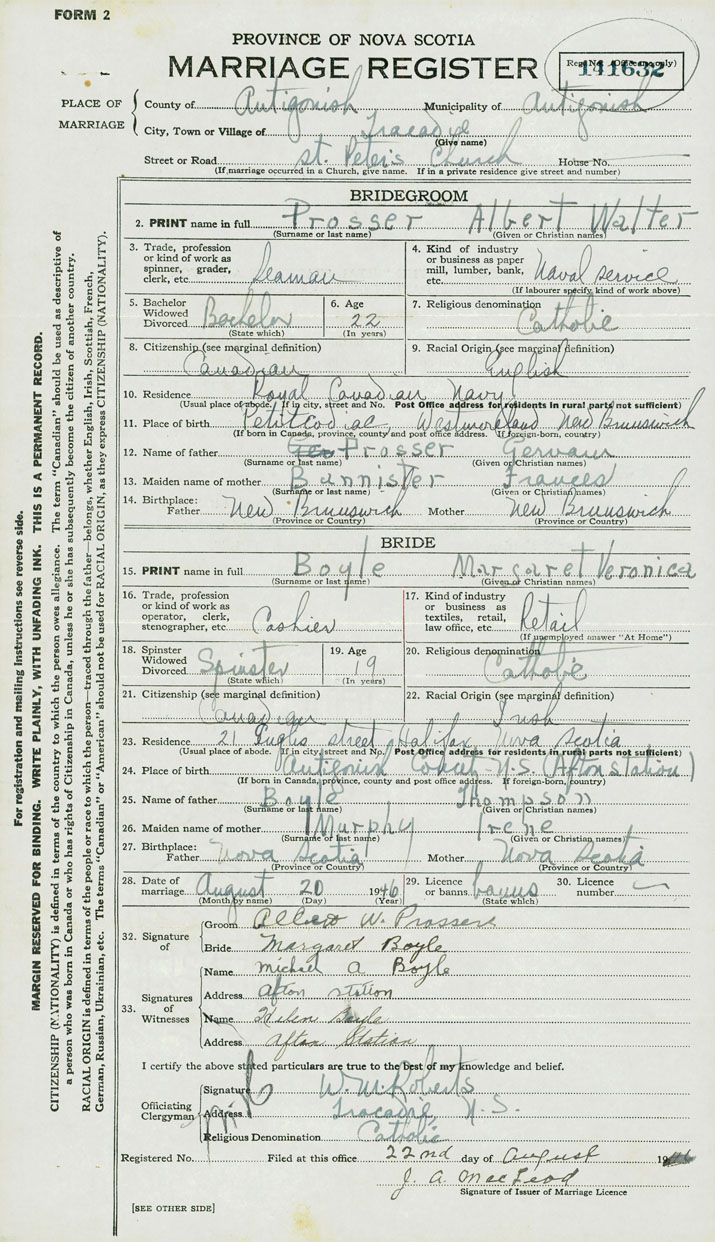 FORM 2
PROVINCE OF NOVA SCOTIA
MARRIAGE REGISTER
Reg. No. (Office use only)
141632
PLACE OF MARRIAGE
County of Antigonish Municipality of Antigonish
City, Town or Village of Tracadie
(Give name)
Street or Road St. Peter's Church House No.
(If marriage occurred in a Church, give name. If in a private residence give street and number)
BRIDEGROOM
2. PRINT name in full Prosser Albert Walter
(Surname or last name) (Given or Christian names)
3. Trade, profession or kind of work as spinner, grader, clerk, etc. Seaman
4. Kind of industry or business as paper mill, lumber, bank, etc. Naval service
(If labourer specify kind of work above)
5. Bachelor Widowed Divorced Bachelor
(State which)
6. Age 22
(In years)
7. Religious denomination Catholic
8. Citizenship (see marginal definition) Canadian
9. Racial Origin (see marginal definition) English
10. Residence Royal Canadian Navy
(Usual place of abode. If in city, street and No. Post Office address for residents in rural parts not sufficient)
11. Place of birth Petitcodiac, Westmoreland New Brunswick
(If born in Canada, province, county and post office address. If foreign-born, country)
12. Name of father Prosser
(Surname or last name) (Given or Christian names)
13. Maiden name of mother Bannister Frances
(Surname or last name) (Given or Christian names)
14. Birthplace: Father New Brunswick Mother New Brunswick
(Province or Country) (Province or Country)
BRIDE
15. PRINT name in full Boyle Margaret Veronica
(Surname or last name) (Given or Christian names)
16. Trade, profession or kind of work as operator, clerk, stenographer, etc. Cashier
17. Kind of industry or business as textiles, retail, law office, etc. Retail
(If unemployed answer "At Home")
18. Spinster Widowed Divorced Spinster
(State which)
19. Age 19
(In years)
20. Religious denomination Catholic
21. Citizenship (see marginal definition) Canadian
22. Racial Origin (see marginal definition) Irish
23. Residence 21 Inglis street Halifax Nova Scotia
(Usual place of abode. If in city, street and No. Post Office address for residents in rural parts not sufficient)
24. Place of birth Antigonish N.S. (Afton station)
(If born in Canada, province, county and post office address. If foreign-born, country)
25. Name of father Boyle Thompson
(Surname or last name) (Given or Christian names)
26. Maiden name of mother Murphy Irene
(Surname or last name) (Given or Christian names)
27. Birthplace: Father Nova Scotia Mother Nova Scotia
(Province or Country) (Province or Country)
28. Date of marriage August 20 1946
(Month by name) (Day) (Year)
29. Licence or banns banns
(State which)
30. Licence number
32. Signature of
Groom Albert W. Prosser
Bride Margaret Boyle
33. Signatures of Witnesses
Name Michael A Boyle
Address Afton station
Name Helen Boyle
Address Afton Station
I certify the above stated particulars are true to the best of my knowledge and belief.
Officiating Clergyman
Signature W. M. Roberts
Address Tracadie, N.S.
Religious Denomination Catholic
Registered No. Filed at this office 22nd day of August 1946
J. A. MacLeod
Signature of Issuer of Marriage Licence
[SEE OTHER SIDE]
For registration and mailing instructions see reverse side.
MARGIN RESERVED FOR BINDING. WRITE PLAINLY, WITH UNFADING INK. THIS IS A PERMANENT RECORD.
CITIZENSHIP (NATIONALITY) is defined in terms of the country to which the person owes allegiance. The term "Canadian" should be used as descriptive of
a person who was born in Canada or who has rights of Citizenship in Canada, unless he or she has subsequently become the citizen of another country.
RACIAL ORIGIN is defined in terms of the people or race to which the person—traced through the father—belongs, whether English, Irish, Scottish, French,
German, Russian, Ukrainian, etc. The terms "Canadian" or "American" should not be used for RACIAL ORIGIN, as they express CITIZENSHIP (NATIONALITY).